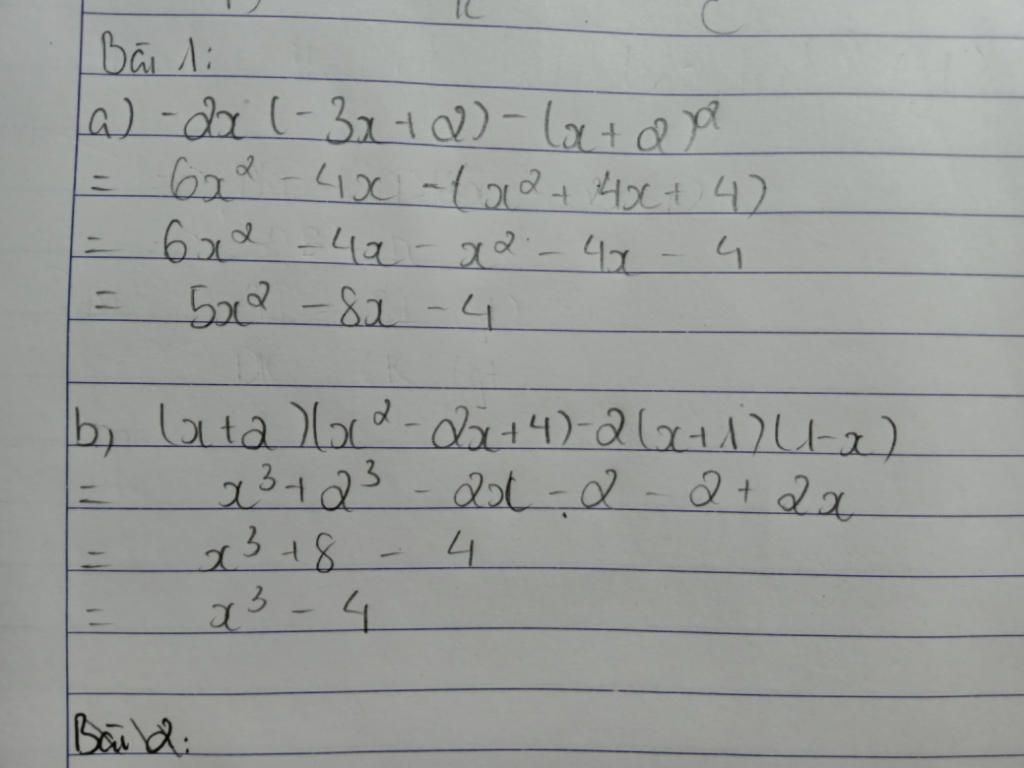 Bài 1:
a) -2x (-3x+2) - (x+2)²
= 6x² - 4x - (x² + 4x + 4)
= 6x² - 4x - x² - 4x - 4
= 5x² - 8x - 4
b, (x+2)(x² - 2x+4) - 2(x+1)(1-x)
= x³ + 2³ - 2x - 2 - 2 + 2x
= x³ + 8 - 4
= x³ - 4
Bài 2: